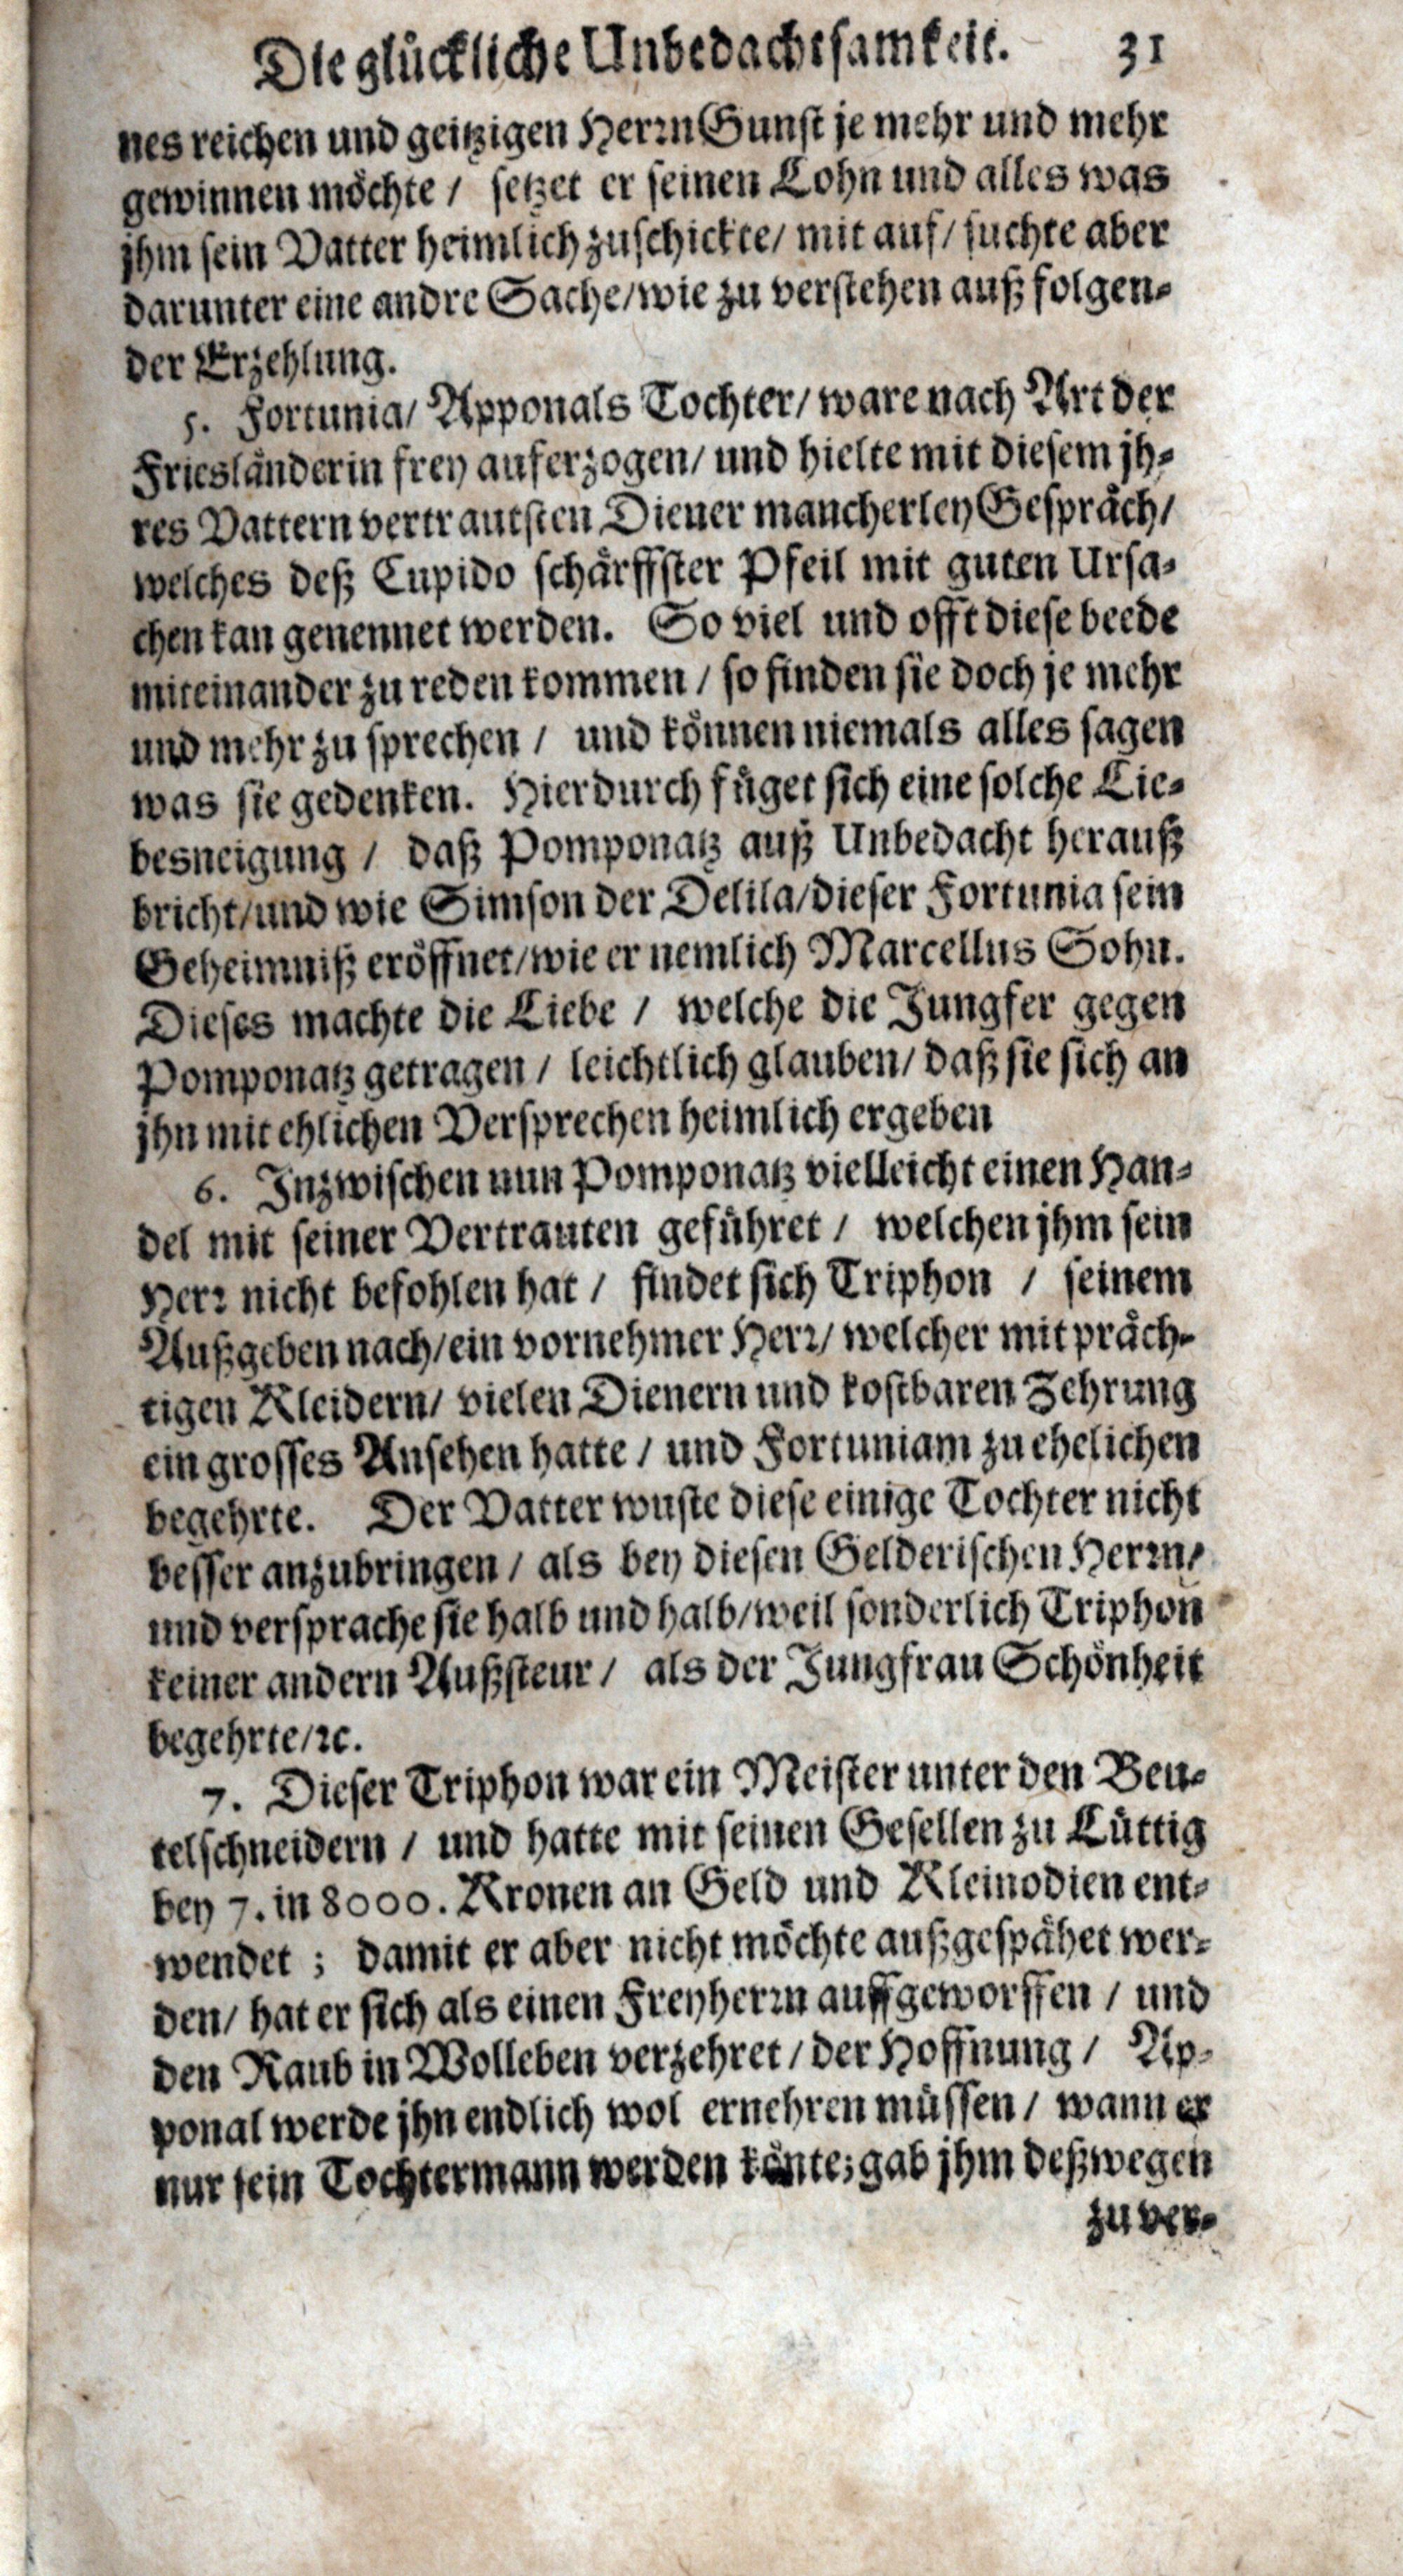 Die glückliche Unbedachtsamkeit. 31
nes reichen und geitzigen Herrn Gunst je mehr und mehr
gewinnen möchte / setzet er seinen Lohn und alles was
jhm sein Vatter heimlich zuschickte / mit auf / suchte aber
darunter eine andre Sache / wie zu verstehen auß folgen-
der Erzehlung.
5. Fortunia / Apponals Tochter / ware nach Art der
Friesländerin frey auferzogen / und hielte mit diesem jh-
res Vattern vertrautsten Diener mancherley Gespräch /
welches deß Cupido schärffster Pfeil mit guten Ursa-
chen kan genennet werden. So viel und offt diese beede
miteinander zu reden kommen / so finden sie doch je mehr
und mehr zu sprechen / und können niemals alles sagen
was sie gedenken. Hierdurch füget sich eine solche Lie-
besneigung / daß Pomponatz auß Unbedacht herauß
bricht / und wie Simson der Delila / dieser Fortunia sein
Geheimniß eröffnet / wie er nemlich Marcellus Sohn.
Dieses machte die Liebe / welche die Jungfer gegen
Pomponatz getragen / leichtlich glauben / daß sie sich an
jhn mit ehlichen Versprechen heimlich ergeben
6. Inzwischen nun Pomponatz vielleicht einen Han-
del mit seiner Vertrauten geführet / welchen jhm sein
Herr nicht befohlen hat / findet sich Triphon / seinem
Außgeben nach / ein vornehmer Herr / welcher mit präch-
tigen Kleidern / vielen Dienern und kostbaren Zehrung
ein grosses Ansehen hatte / und Fortuniam zu ehelichen
begehrte. Der Vatter wuste diese einige Tochter nicht
besser anzubringen / als bey diesen Gelderischen Herrn /
und versprache sie halb und halb / weil sonderlich Triphon
keiner andern Außsteur / als der Jungfrau Schönheit
begehrte / ꝛc.
7. Dieser Triphon war ein Meister unter den Beu-
telschneidern / und hatte mit seinen Gesellen zu Lüttig
bey 7. in 8000. Kronen an Geld und Kleinodien ent-
wendet ; damit er aber nicht möchte außgespähet wer-
den / hat er sich als einen Freyherrn auffgeworffen / und
den Raub in Wolleben verzehret / der Hoffnung / Ap-
ponal werde jhn endlich wol ernehren müssen / wann er
nur sein Tochtermann werden könte; gab jhm deßwegen
zu ver-